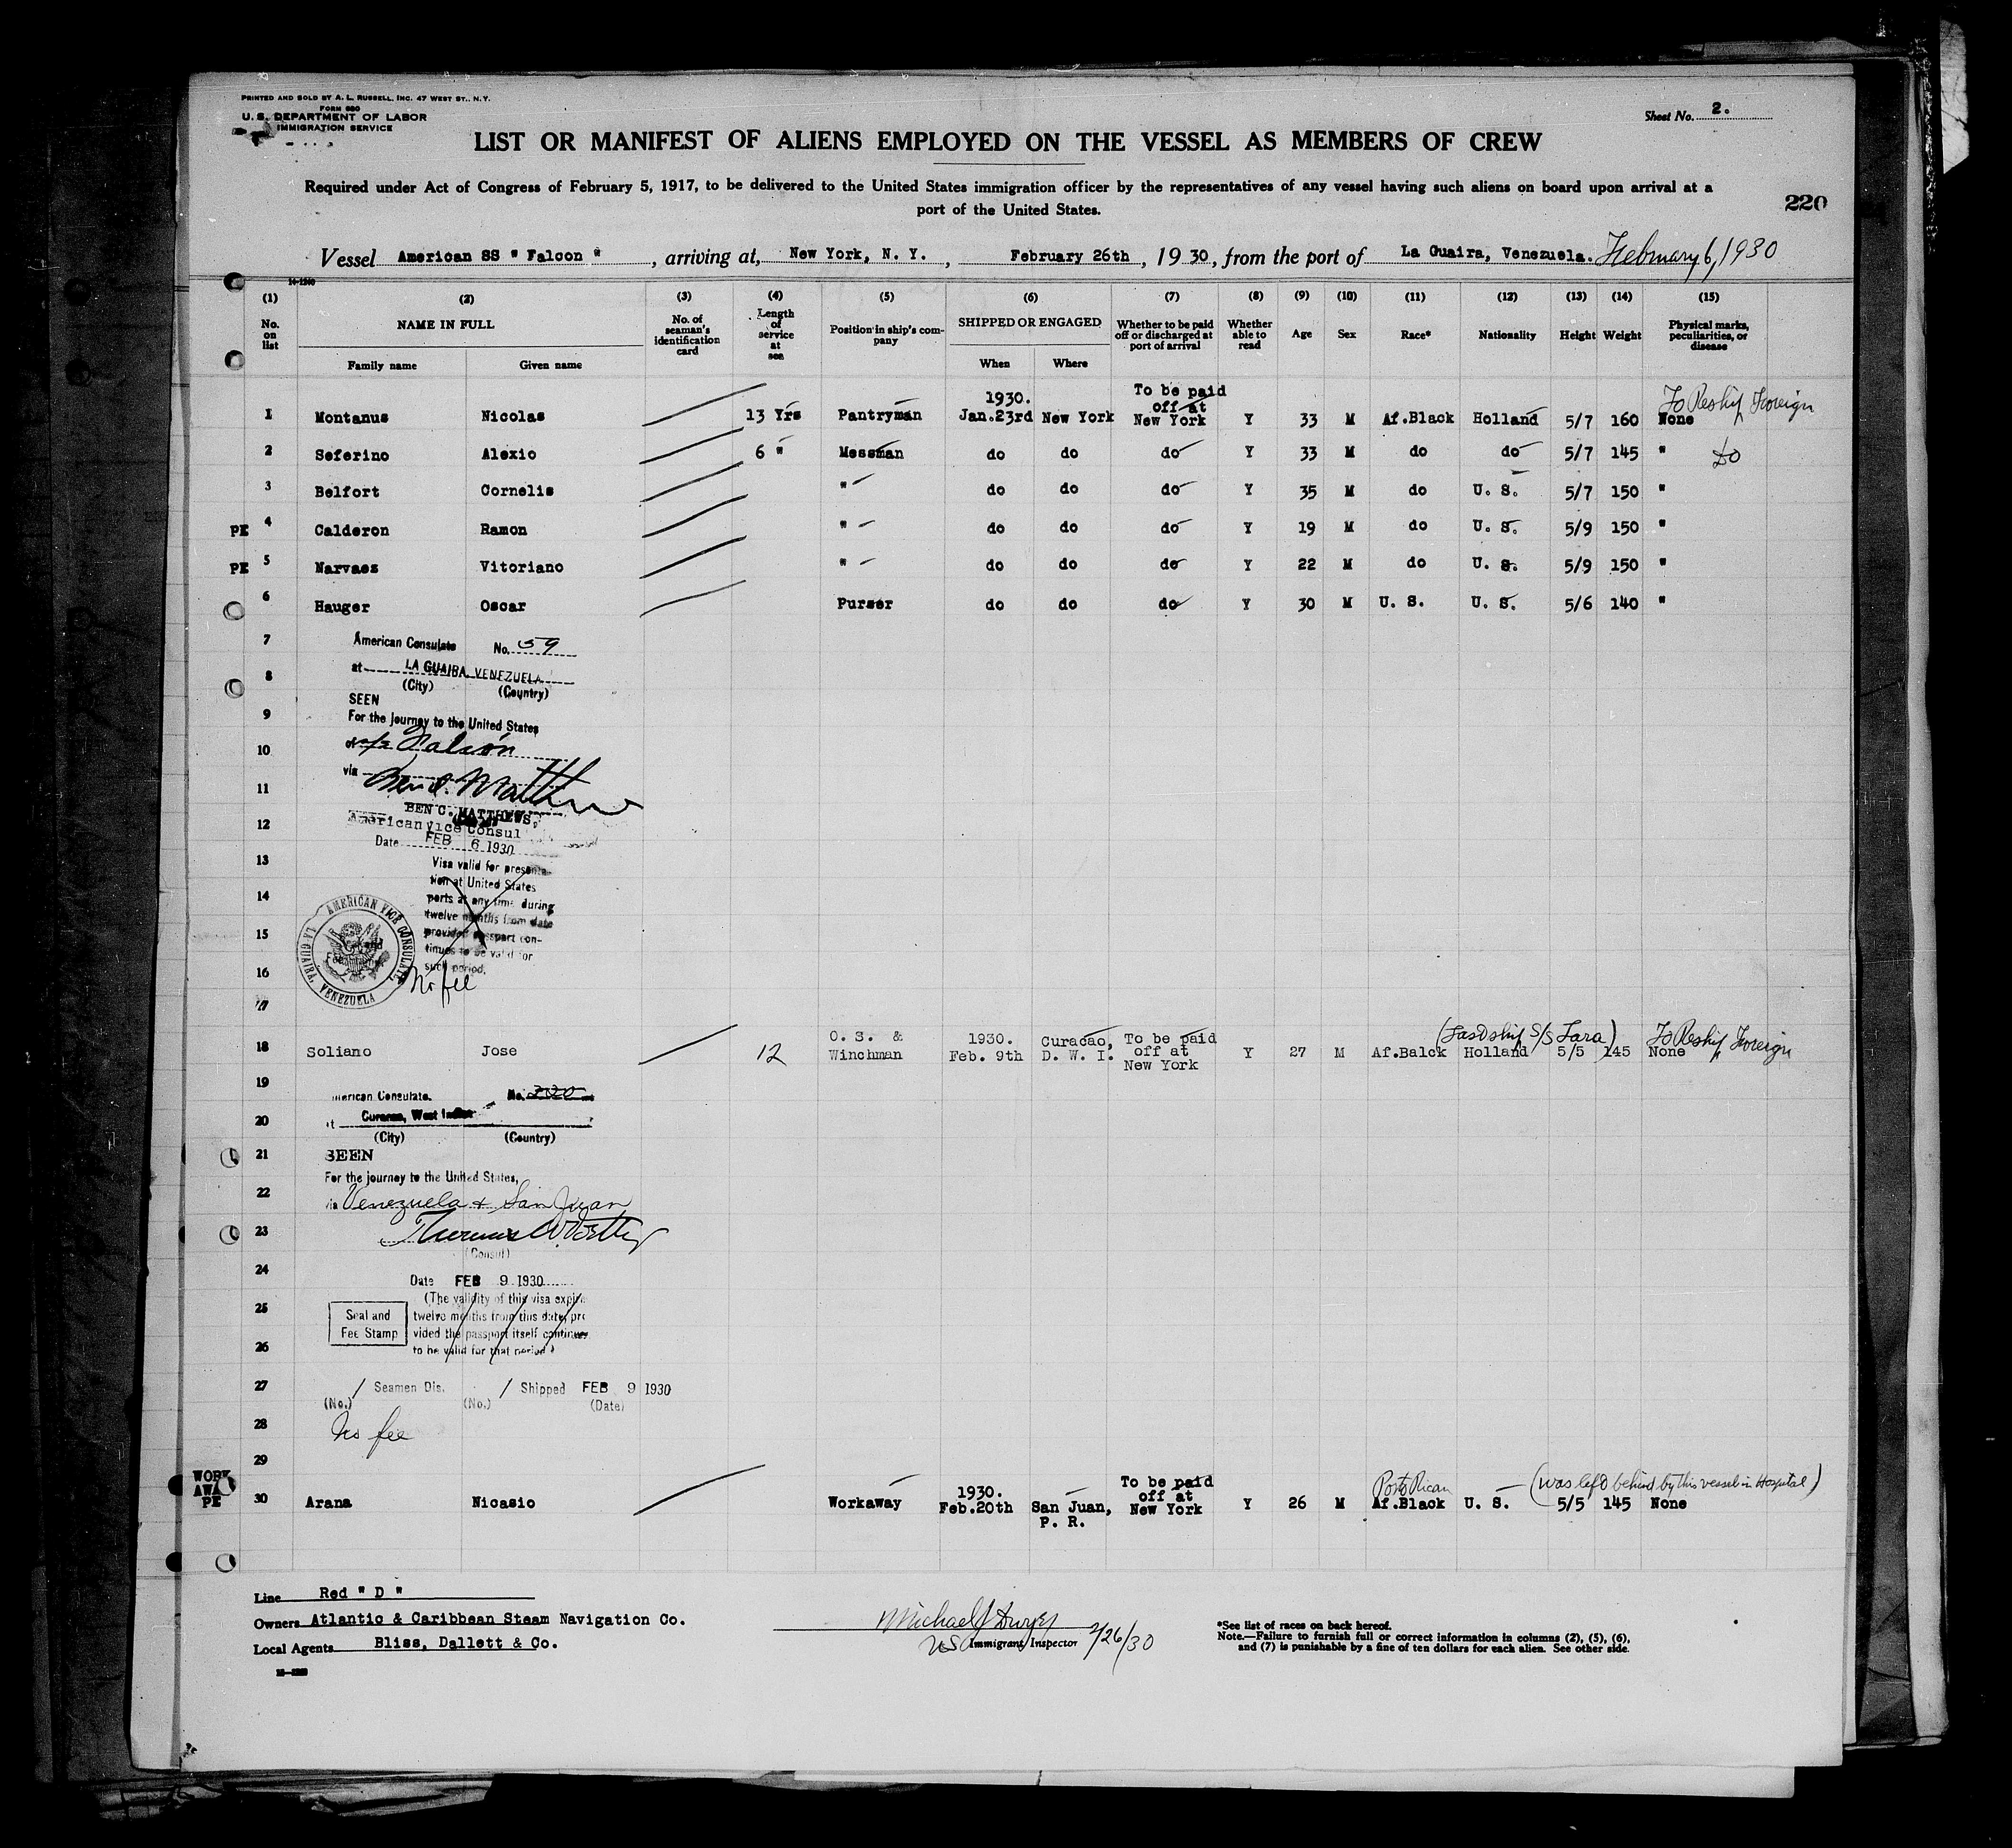 PRINTED AND SOLD BY A. L. RUSSELL, INC. 47 WEST ST., N.Y.
FORM 680
U. S. DEPARTMENT OF LABOR
IMMIGRATION SERVICE
Sheet No. 2.
LIST OR MANIFEST OF ALIENS EMPLOYED ON THE VESSEL AS MEMBERS OF CREW
Required under Act of Congress of February 5, 1917, to be delivered to the United States immigration officer by the representatives of any vessel having such aliens on board upon arrival at a
port of the United States.
220
Vessel American SS " Falcon " , arriving at, New York, N. Y. , February 26th , 19 30, from the port of La Guaira, Venezuela. February 6, 1930
14-1240
(1) (2) (3) (4) (5) (6) (7) (8) (9) (10) (11) (12) (13) (14) (15)
No. on list NAME IN FULL Family name Given name No. of seaman's identification card Length of service at sea Position in ship's company SHIPPED OR ENGAGED When Where Whether to be paid off or discharged at port of arrival Whether able to read Age Sex Race* Nationality Height Weight Physical marks, peculiarities, or disease
1 Montanus Nicolas 13 Yrs Pantryman 1930. Jan.23rd New York To be paid off at New York Y 33 M Af.Black Holland 5/7 160 None To Reship Foreign
2 Seferino Alexio 6 " Messman do do do Y 33 M do do 5/7 145 " Do
3 Belfort Cornelis " do do do Y 35 M do U. S. 5/7 150 "
PE 4 Calderon Ramon " do do do Y 19 M do U. S. 5/9 150 "
PE 5 Narvaes Vitoriano " do do do Y 22 M do U. S. 5/9 150 "
6 Hauger Oscar Purser do do do Y 30 M U. S. U. S. 5/6 140 "
7 American Consulate No. 59
8 at LA GUAIRA, VENEZUELA
(City) (Country)
SEEN
9 For the journey to the United States
10 of s/s Falcon
via
11 Ben C. Matthews
BEN C. MATTHEWS,
12 American Vice Consul
Date FEB 6 1930
13 Visa valid for presenta-
tion at United States
14 ports at any time during
twelve months from date
15 provided passport con-
tinues to be valid for
16 such period.
AMERICAN VICE CONSULATE
LA GUAIRA, VENEZUELA
No fee
17
18 Soliano Jose 12 O. S. & Winchman 1930. Feb. 9th Curacao, D. W. I. To be paid off at New York Y 27 M Af.Balck Holland 5/5 145 None (Last ship S/S Lara) To Reship Foreign
19 American Consulate. No. 220
20 at Curacao, West Indies
(City) (Country)
21 SEEN
For the journey to the United States,
22 via Venezuela & San Juan
23
(Consul)
24 Date FEB 9 1930
25 (The validity of this visa expires
Seal and Fee Stamp
twelve months from this date, pro
vided the passport itself continues
26 to be valid for that period)
27 / Seamen Dis. / Shipped FEB 9 1930
(No.) (No.) (Date)
28 No fee
29
WORK AWAY PE 30 Arana Nicasio Workaway 1930. Feb.20th San Juan, P. R. To be paid off at New York Y 26 M Porto Rican Af.Black U. S. 5/5 145 None (was left behind by this vessel in Hospital)
Line Red " D "
Owners Atlantic & Caribbean Steam Navigation Co.
Local Agents Bliss, Dallett & Co.
Michael J Dwyer
US Immigrant Inspector 2/26/30
*See list of races on back hereof.
Note.—Failure to furnish full or correct information in columns (2), (5), (6),
and (7) is punishable by a fine of ten dollars for each alien. See other side.